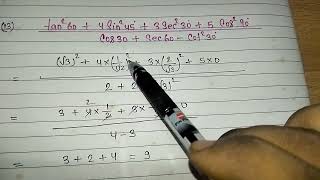 tan²60 + 4 Sin²45 + 3 Sec²30 + 5 Cos²90
Cos30 + Sec60 - Cot²30
= (√3)² + 4×(1/√2)² 3×(2/√3)² + 5×0
2 + 2 √3)²
= 3 + 4×1/2 +
4-3
= 3 + 2 + 4 = 9